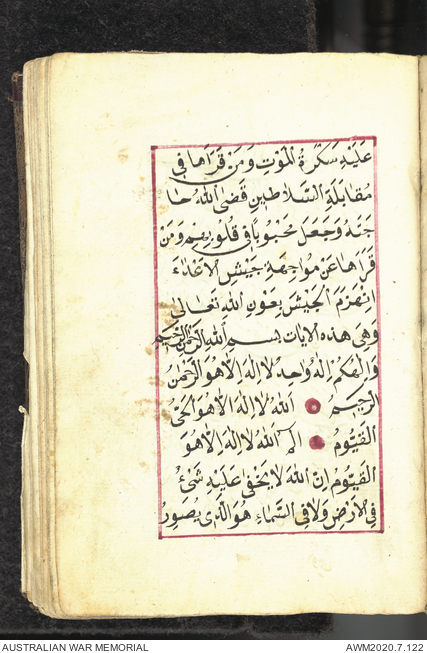 عَلَيْهِ سَكْرَةُ الْمَوْتِ وَمَنْ قَرَاَهَا فِي
مُقَابَلَةِ السَّلَاطِينِ قَضَى اللهُ حَا
جَتَهُ وَجَعَلَ مَحْبُوبًا فِي قُلُوبِهِمْ وَمَنْ
قَرَاَهَا عَنْ مُوَاجَهَةِ جَيْشِ الْاَعْدَاءِ
اِنْهَزَمَ الْجَيْشُ بِعَوْنِ اللهِ تَعَالَى
وَهِيَ هَذِهِ الْاٰيَاتُ بِسْمِ اللهِ الرَّحْمٰنِ الرَّحِيمِ
وَاِلٰهُكُمْ اِلٰهٌ وَاحِدٌ لَا اِلٰهَ اِلَّا هُوَ الرَّحْمٰنُ
الرَّحِيمُ اَللهُ لَا اِلٰهَ اِلَّا هُوَ الْحَيُّ
الْقَيُّومُ الٓمٓ اَللهُ لَا اِلٰهَ اِلَّا هُوَ
الْقَيُّومُ اِنَّ اللهَ لَا يَخْفٰى عَلَيْهِ شَيْءٌ
فِي الْاَرْضِ وَلَا فِي السَّمَاءِ هُوَ الَّذِي يُصَوِّرُ
AUSTRALIAN WAR MEMORIAL AWM2020.7.122